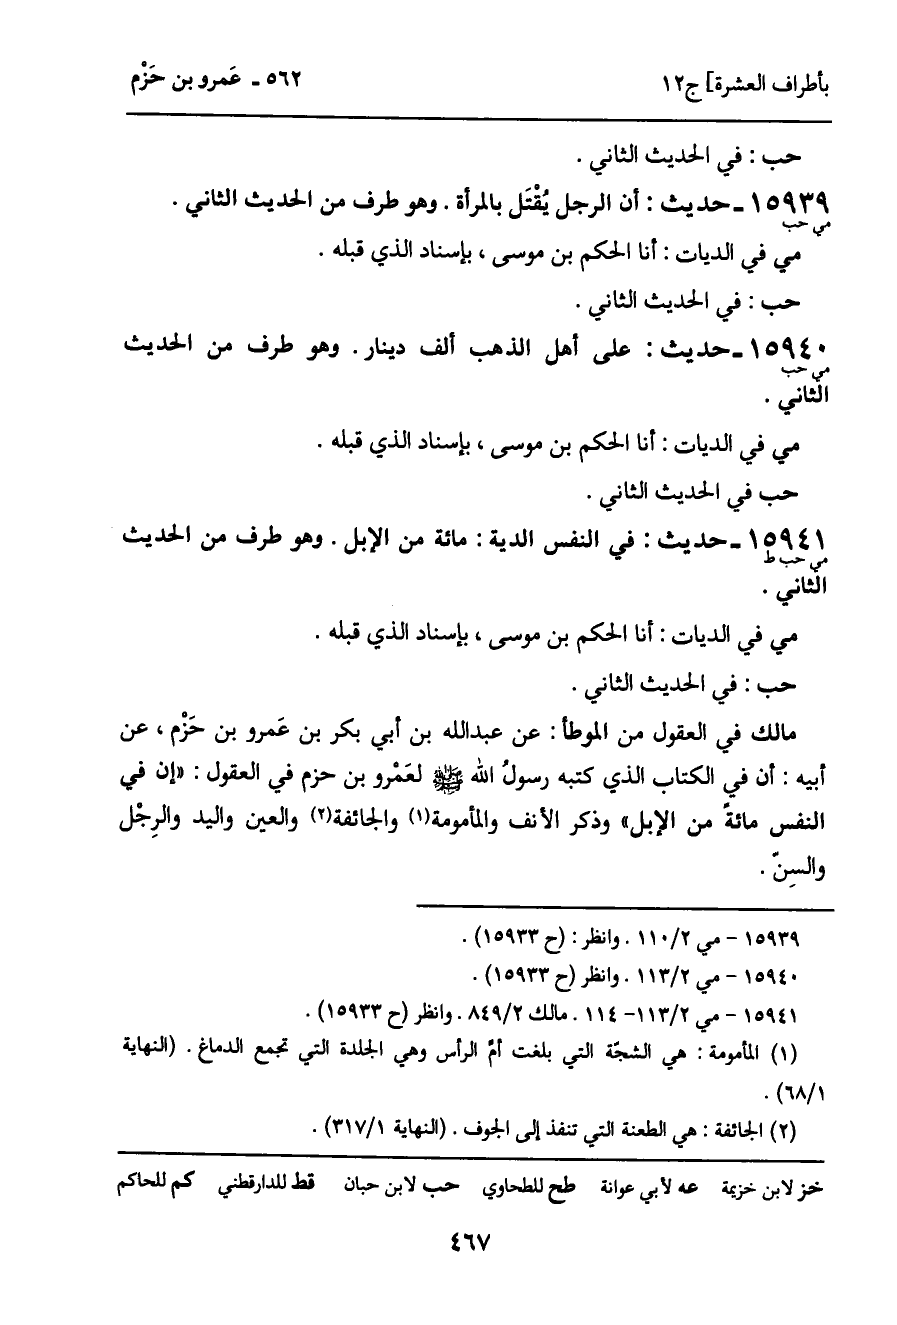 بأطراف العشرة] ج١٢ ٥٦٢ ـ عَمرو بن حَزْم
حب : في الحديث الثاني .
١٥٩٣٩ ـ حديث : أن الرجل يُقْتَل بالمرأة . وهو طرف من الحديث الثاني .
مي حب
مي في الديات : أنا الحكم بن موسى ، بإسناد الذي قبله .
حب : في الحديث الثاني .
١٥٩٤٠ ـ حديث : على أهل الذهب ألف دينار . وهو طرف من الحديث
مي حب
الثاني .
مي في الديات : أنا الحكم بن موسى ، بإسناد الذي قبله .
حب في الحديث الثاني .
١٥٩٤١ ـ حديث : في النفس الدية : مائة من الإبل . وهو طرف من الحديث
مي حب ط
الثاني .
مي في الديات : أنا الحكم بن موسى ، بإسناد الذي قبله .
حب : في الحديث الثاني .
مالك في العقول من الموطأ : عن عبدالله بن أبي بكر بن عَمرو بن حَزْم ، عن
أبيه : أن في الكتاب الذي كتبه رسولُ الله ﷺ لعَمْرو بن حزم في العقول : «إن في
النفس مائةً من الإبل» وذكر الأنف والمأمومة(١) والجائفة(٢) والعين واليد والرِجْل
والسِنّ .
١٥٩٣٩ – مي ١١٠/٢ . وانظر : (ح ١٥٩٣٣) .
١٥٩٤٠ – مي ١١٣/٢ . وانظر (ح ١٥٩٣٣) .
١٥٩٤١ – مي ١١٣/٢– ١١٤ . مالك ٨٤٩/٢ . وانظر (ح ١٥٩٣٣) .
(١) المأمومة : هي الشجّة التي بلغت أمَّ الرأس وهي الجلدة التي تجمع الدماغ . (النهاية
٦٨/١) .
(٢) الجائفة : هي الطعنة التي تنفذ إلى الجوف . (النهاية ٣١٧/١) .
خز لابن خزيمة عه لأبي عوانة طح للطحاوي حب لابن حبان قط للدارقطني كم للحاكم
٤٦٧